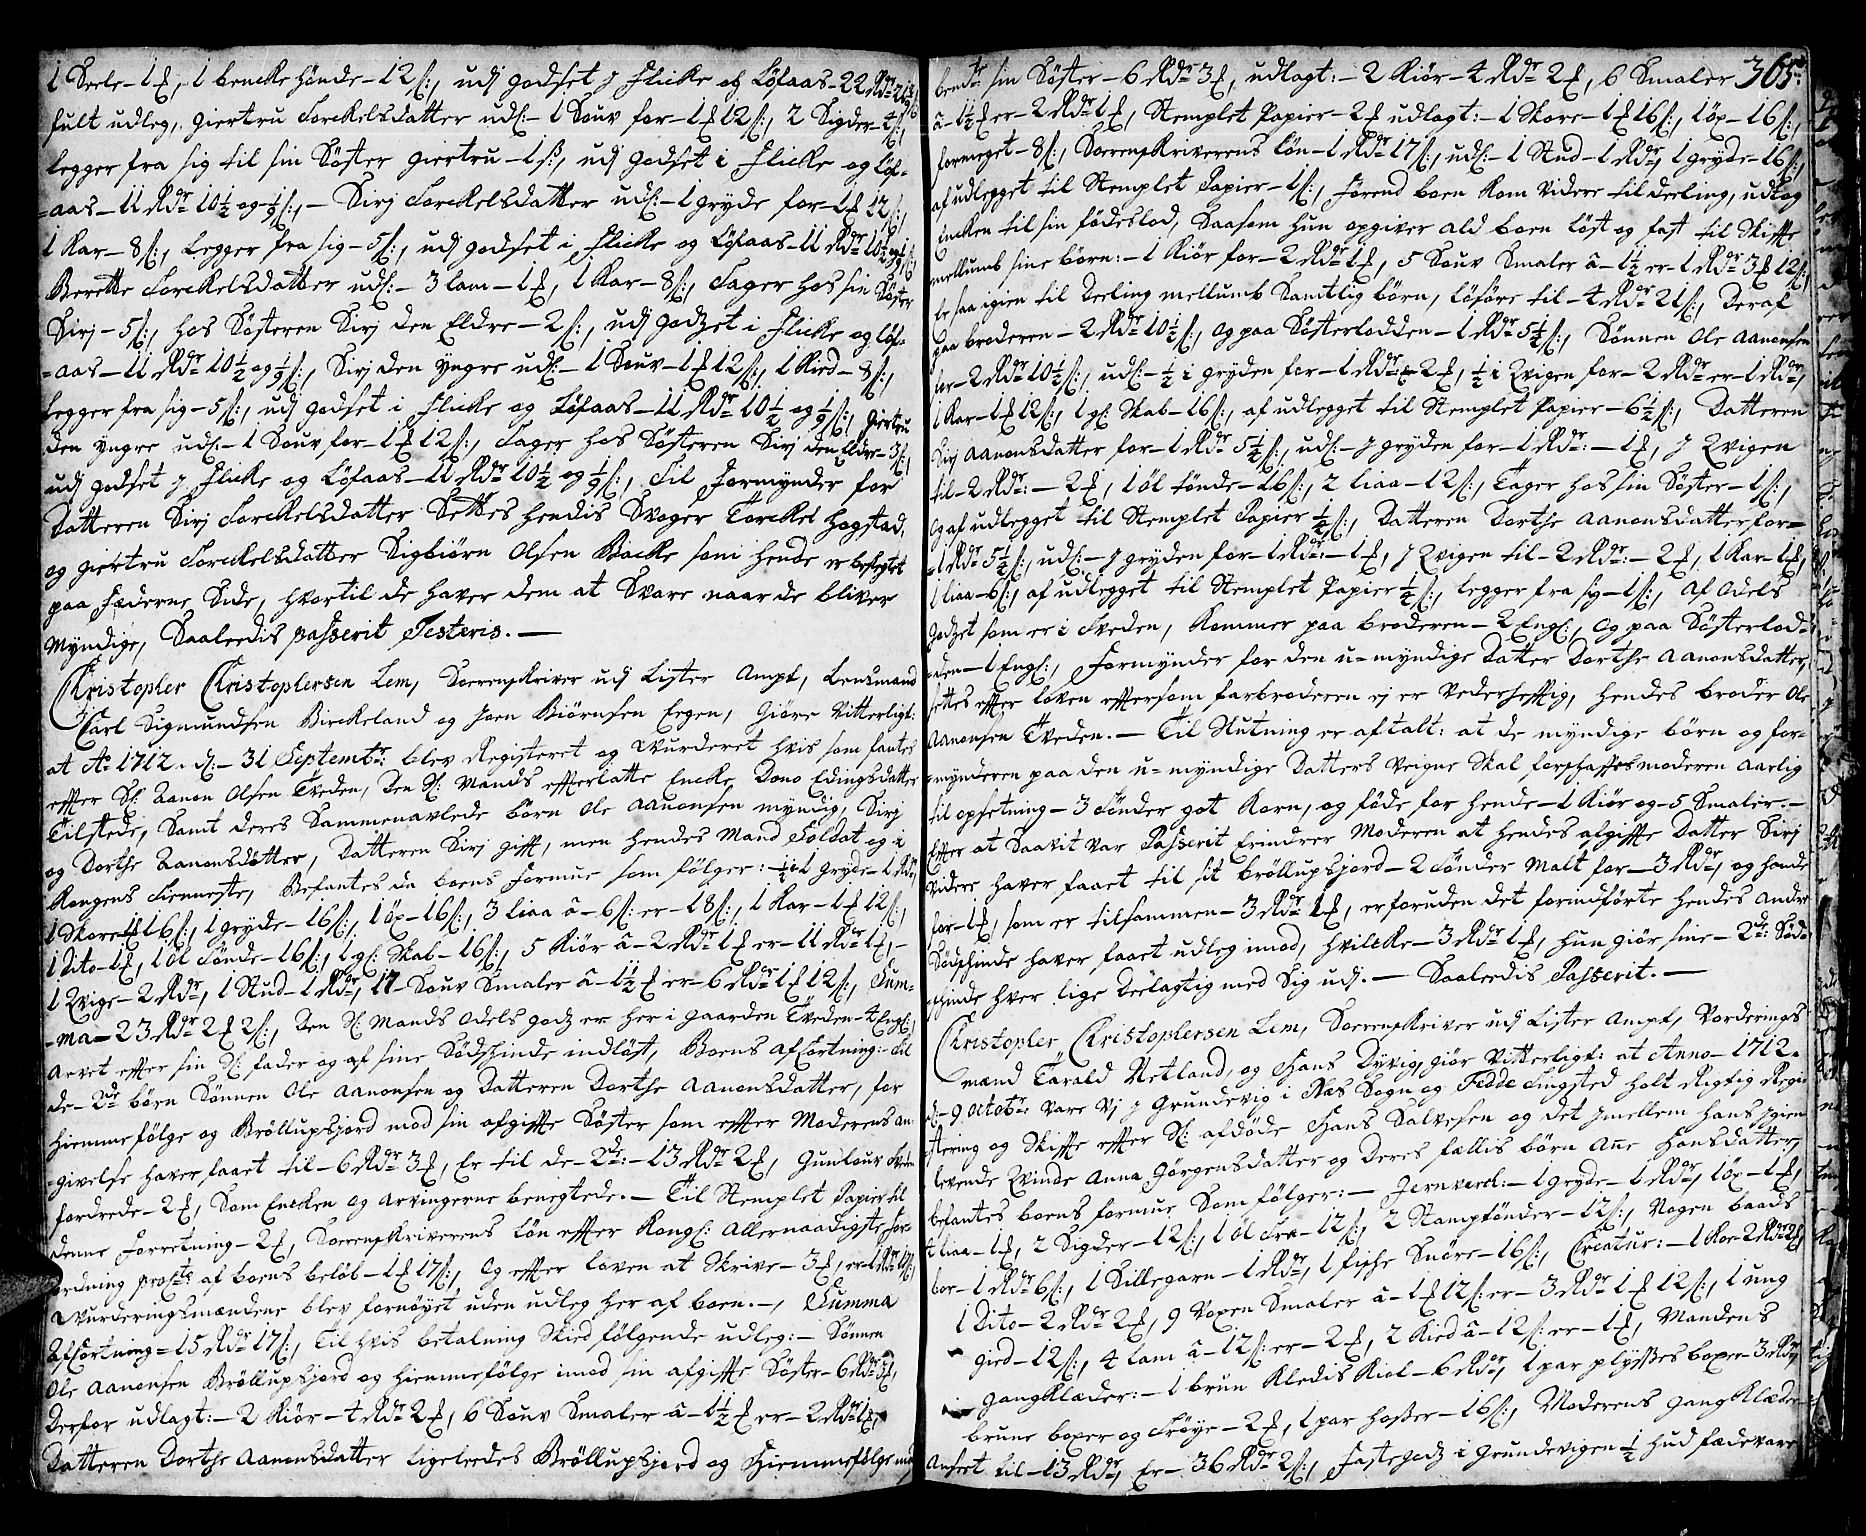 1 Seele - 1 £, 1 bencke hönde - 12 ß:, udj godset J Flicke og Löfaas - 22 Rdr 21
fult udleg, giertru Torckelsdatter udl: - 1 Souv for - 1 £ 12 ß:, 2 Sigder - 4 ß:,
legger fra sig til sin Söster giertru - 1 ß:, udj godset i Flicke og Löf-
=aas - 11 Rdr 10½ og ⅑ ß:, - Sirj Torckelsdatter udl: - 1 gryde for - 1 £ 12 ß:,
1 Kar - 8 ß:, legger fra sig - 5 ß:, udj godset i Flicke og Löfaas - 11 Rdr 10½ og ⅑ ß:,
Berette Torckelsdatter udl: - 3 lam - 1 £, 1 Kar - 8 ß:, Tager hos sin Söster
Sirj - 5 ß:, hos Sösteren Sirj den Eldre - 2 ß:, udj godzet i Flicke og löf-
=aas - 11 Rdr 10½ og ⅑ ß:, Sirj den yngre udl: - 1 Souv - 1 £ 12 ß:, 1 Kied - 8 ß:,
legger fra sig - 5 ß:, udj godset i Flicke og Löfaas - 11 Rdr 10½ og ⅑ ß:, giertru
den yngre udl: - 1 Souv for - 1 £ 12 ß:, Tager hos Sösteren Sirj den Eldre - 3 ß:,
udj godset J Flicke og Löfaas - 11 Rdr 10½ og ⅑ ß:, Til Formynder for
Datteren Sirj Torckelsdatter Settes hendis Svoger Torckel hogstad,
og giertru Torckelsdatter Sigbiörn Olsen Backe som hende er besegtet
paa Fæderne Side, hvortil de haver dem at Svare naar de bliver
Myndige, Saaleedis passerit Testeris. -
Christopher Christophersen Lem, Sorenskriver udj Lister Ampt, Lensmand
Carl Sigmundsen Birckeland og Joen Biörnsen Eegen, Giöre Vitterligt:
at Ao 1712. d: - 31 Septembr: blev Registeret og Wurderet hvis som fantes
effter Sl: Aanon Olsen Tveden, Den Sl: Mands effterlatte Encke Dono Edingsdatter
Tilstede, Samt deres Sammenavlede börn Ole Aanonsen myndig, Sirj
og Dorthe Aanonsdötter, Datteren Sirj gifft, men hendes Mand Soldat og i
Kongens Tienneste, Befantes da boens Formue som fölger: - 1 gryde - 1 Rdr,
1 Skore 1 £ 16 ß:, 1 gryde - 16 ß:, 1 öx - 16 ß:, 3 liaa â - 6 ß: er - 18 ß:, 1 Kar - 1 £ 12 ß:,
1 Dito - 1 £, 1 öl Tönde - 16 ß:, 1 gl: Skab - 16 ß:, 5 Kiör â - 2 Rdr 1 £ er - 11 Rdr 1 £, -
1 Qvige - 2 Rdr, 1 Stud - 1 Rdr, 17 Souv Smaler â - 1½ £ er - 6 Rdr 1 £ 12 ß:, Sum-
-ma - 23 Rdr 2 £ 2 ß:, den Sl: Mands Odels godz er her i gaarden Tveden - 4 Engl:,
Arvet effter sin Sl: fader og af sine Södschinde indlöst, Boens Affortning: - til
de - 2de börn Sönnen Ole Aanonsen og Datteren Dorthe Aanonsdatter, for
hiemmefölge og Bröllupsfiord mod sin afgiffte Söster som effter Moderens an-
-givelse haver faaet til - 6 Rdr 3 £, Er til de - 2de: - 13 Rdr 2 £, Gunlour
fordrede - 2 £, Som Encken og Arvingerne benegtede. - Til Stemplet Papier til
denne Forretning - 2 £, Sorenskriverens lön effter Kongl: Allernaadigste For-
ordning af boens belöb - 1 £ 17 ß:, og effter loven at Skrive - 3 £, er - 1 Rdr 17 ß:,
Wurderingsmændene blev fornöyet uden udleg her af boen. -, Summa
Affortning = 15 Rdr 17 ß:, Til hvis betalning Skied fölgende udleg: - Sönnen
Ole Aanonsen Bröllupsfiord og hiemmefölge imod sin afgiffte Söster - 6 Rdr 3 £,
Derfor udlagt: - 2 Kiör - 4 Rdr 2 £, 6 Souv Smaler â - 1½ £ er - 2 Rdr 1 £,
Datteren Dorthe Aanonsdatter ligeleedes Bröllupsfiord og Hiemmefölge mod
365.
bemte: sin Söster - 6 Rdr 3 £, udlagt: - 2 Kiör - 4 Rdr 2 £, 6 Smaler
â - 1½ £ er - 2 Rdr 1 £, Stemplet Papier - 2 £ udlagt: - 1 Skore - 1 £ 16 ß:, 1 öx - 16 ß:,
formeget - 8 ß:, Sorenskriverens lön - 1 Rdr 17 ß:, udl: - 1 Stud - 1 Rdr, 1 gryde - 16 ß:,
af udlegget til Stemplet Papier - 1 ß:, Förend boen kom videre til deeling, udtog
Encken til sin födeslod, Saasom hun opgiver ald boen löst og fast til Skiffte
mellumb sine börn: - 1 Kiör for - 2 Rdr 1 £, 5 Souv Smaler â - 1½ er - 1 Rdr 3 £ 12 ß:,
Er saa igien til Deeling mellumb Samtlig börn, löföre til - 4 Rdr 21 ß:, Deraf
paa broderen - 2 Rdr 10½ ß:, og paa Sösterlodden - 1 Rdr 5¼ ß:, Sönnen Ole Aanonsen
for - 2 Rdr 10½ ß:, udl: - ½ i gryden for - 1 Rdr - 2 £, ½ i Qvigen for - 2 Rdr er - 1 Rdr,
1 Kar - 1 £ 12 ß:, 1 gl: Skab - 16 ß:, af udlegget til Stemplet Papier - 6½ ß:, Datteren
Sirj Aanonsdatter for - 1 Rdr 5¼ ß:, udl: - J gryden for - 1 Rdr: - 1 £, J Qvigen
til - 2 Rdr: - 2 £, 1 öl tönde - 16 ß:, 2 liaa - 12 ß:, Tager hos sin Söster - 1 ß:,
og af udlegget til Stemplet Papier ¼ ß:, Datteren Dorthe Aanonsdatter for -
- 1 Rdr 5¼ ß:, udl: - J gryden for - 1 Rdr: - 1 £, J Qvigen til - 2 Rdr: - 2 £, 1 Kar - 1 £,
1 liaa - 6 ß:, af udlegget til Stemplet Papier ¼ ß:, legger fra sig - 1 ß:, Af Odels
godzet som er i Tveden, Kommer paa broderen - 2 Engl:, og paa Sösterlod-
-den - 1 Engl:, Formynder for den u=myndige Datter Dorthe Aanonsdatter,
settes effter loven efftersom farbroderen ej er Vederhefftig, hendes broder Ole
Aanonsen Tveden. - Til Slutning er aftalt: at de myndige börn og for-
-mynderen paa den u=myndige Datters Veigne Skal forschaffe moderen Aarlig
til opfetning - 3 Tönder got Korn, og föde for hende - 1 Kiör og - 5 Smaler. -
Effter at Saavit var Passerit Erindrer Moderen at hendes afgiffte Datter Sirj
Videre haver faaet til sit bröllupsfiord - 2 Tönder Malt for - 3 Rdr, og
for - 1 £, som er tilsammen - 3 Rdr 1 £, er foruden det forindförte hendes andre
Södschinde haver faaet udleg imod, hvilcke - 3 Rdr 1 £, hun giör sine - 2de: Söd-
schinde hver lige Deelagtig med Sig udj. - Saaleedis Passerit. -
Christopher Christophersen Lem, Sorenskriver udj Lister Ampt, Vorderings
mænd Tarald Netland, og Hans Dyvig, giör Vitterligt: at Anno - 1712.
d: - 9 octobr: vare Vj J Grundevig i Næs Sogn og Fedde Tingsted holt Rigtig Regi-
stering og Skiffte effter Sl: afdöde Hans Salvesen og det Jmellem hans Igien
levende Qvinde Anna Jörgensdatter og Deres fællis börn Ane Hansdatter,
befantes boens formue Som fölger: - Jernverck: - 1 gryde - 1 Rdr, 1 öx - 1 £,
4 liaa - 1 £, 2 Sigder - 12 ß:, 1 öl Træ - 12 ß:, 2 Stamptönder - 12 ß:, Nogen baads
bor - 1 Rdr 6 ß:, 1 Sillegarn - 1 Rdr, 1 fische Snöre - 16 ß:, Creatur: - 1 Koe - 2 Rdr 2 £,
1 Dito - 2 Rdr 2 £, 9 Voxen Smaler â - 1 £ 12 ß: er - 3 Rdr 1 £ 12 ß:, 1 ung
gied - 12 ß:, 4 lam â - 12 ß: er - 2 £, 2 Kied â - 12 ß: er - 1 £, Mandens
gangklæder: - 1 brun Kledis Kiol - 6 Rdr, 1 par plysses boxer - 3 Rdr,
brune boxer og Tröye - 2 £, 1 par hosser - 16 ß:, Moderens gangklæder
Ansett til - 13 Rdr, Er - 36 Rdr 2 ß:, Fastegodz i Grundevigen ½ hud fædevare